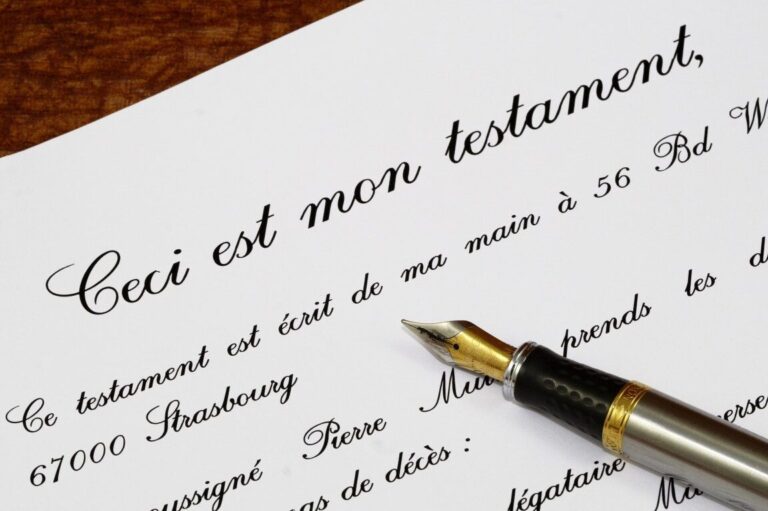 Ceci est mon testament,
Ce testament est écrit de ma main à 56 Bd W
67000 Strasbourg
oussigné Pierre Mu prends les d
as de décès :
légataire